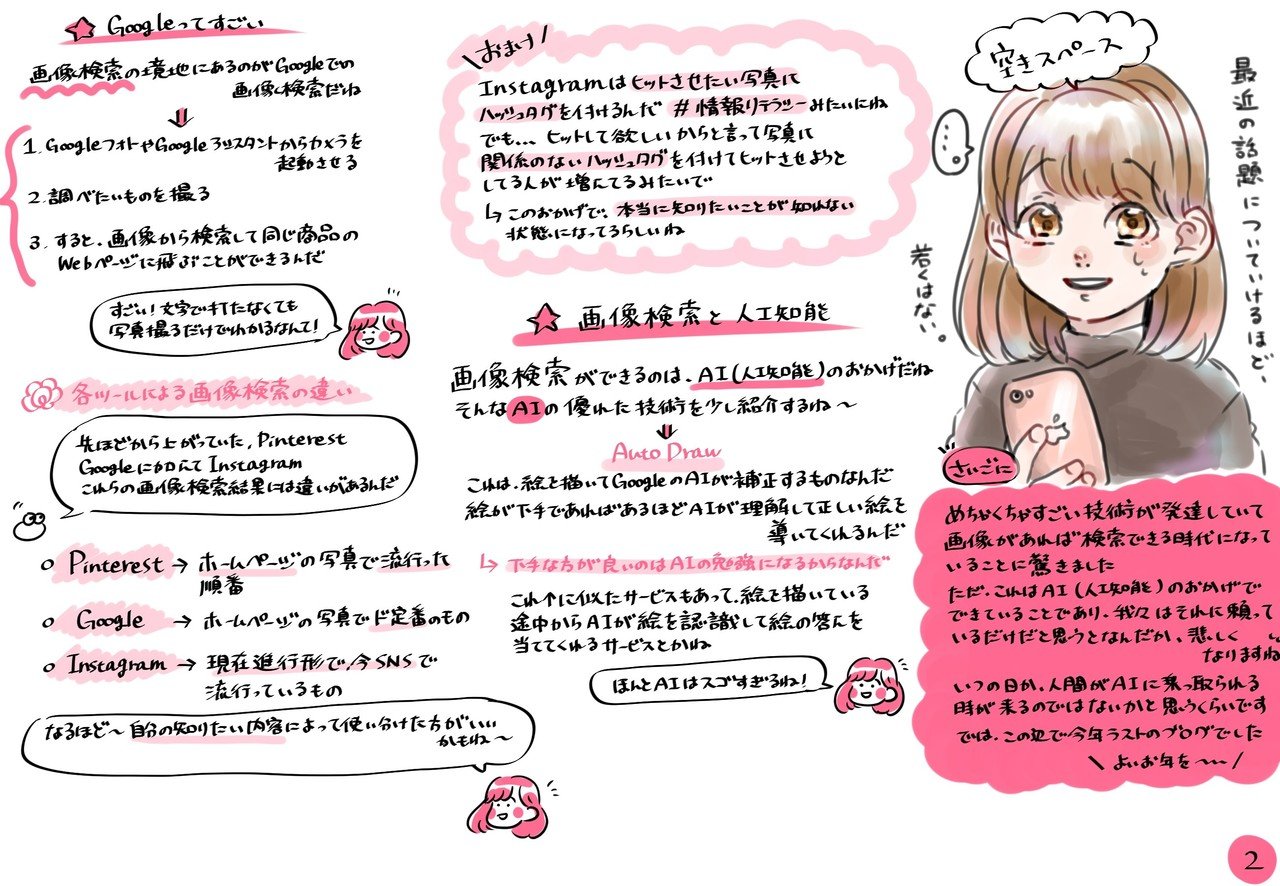 Googleってすごい
画像検索の境地にあるのがGoogleでの
画像検索だね
1. GoogleフォトやGoogleアシスタントからカメラを
起動させる
2. 調べたいものを撮る
3. すると、画像から検索して同じ商品の
Webページに飛ぶことができるんだ
すごい!文字で打たなくても
写真撮るだけでわかるなんて!
各ツールによる画像検索の違い
先ほどから上がっていた、Pinterest
Googleに加えて Instagram
これらの画像検索結果には違いがあるんだ
Pinterest → ホームページの写真で流行った
順番
Google → ホームページの写真でド定番のもの
Instagram → 現在進行形で、今SNSで
流行っているもの
なるほど〜 自分の知りたい内容によって使い分けた方がいい
かもね〜
おまけ
Instagramはヒットさせたい写真に
ハッシュタグを付けるんだ #情報リテラシーみたいにね
でも... ヒットして欲しいからと言って写真に
関係のないハッシュタグを付けてヒットさせようと
してる人が増えてるみたいで
↳ このおかげで、本当に知りたいことが知れない
状態になってるらしいね
画像検索と人工知能
画像検索ができるのは、AI(人工知能)のおかげだね
そんなAIの優れた技術を少し紹介するね〜
Auto Draw
これは、絵を描いてGoogleのAIが補正するものなんだ
絵が下手であればあるほどAIが理解して正しい絵を
導いてくれるんだ
↳ 下手な方が良いのはAIの勉強になるからなんだ
これに似たサービスもあって、絵を描いている
途中からAIが絵を認識して絵の答えを
当ててくれるサービスとかね
ほんとAIはスゴすぎるね!
空きスペース
最近の話題についていけるほど、
若くはない。
...
さいごに
めちゃくちゃすごい技術が発達していて
画像があれば検索できる時代になって
いることに驚きました
ただ、これはAI(人工知能)のおかげで
できていることであり、我々はそれに頼って
いるだけだと思うとなんだか、悲しく
なりますね
いつの日か、人間がAIに乗っ取られる
時が来るのではないかと思うくらいです
では、この辺で今年ラストのブログでした
\ よいお年を〜 /
2